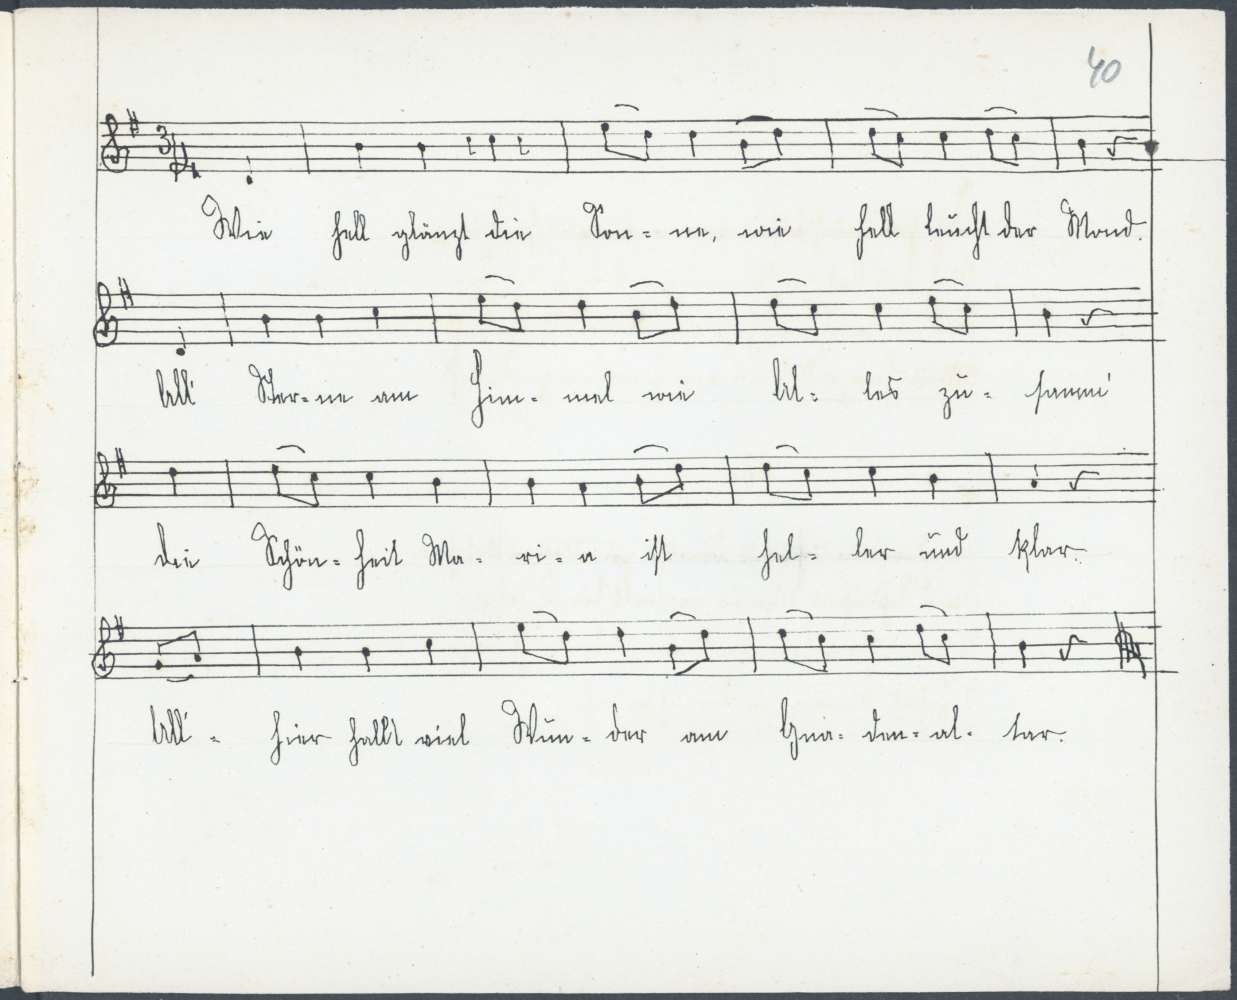 40
3/4
Wie hell glänzt die Son= ne, wie hell leucht der Mond.
All' Ster=ne am Him= mel wie Al= les zu= samm'
die Schön= heit Ma= ri= a ist hel= ler und klar.
All'= hier hallt viel Wun= der am Gna= den= al= tar.